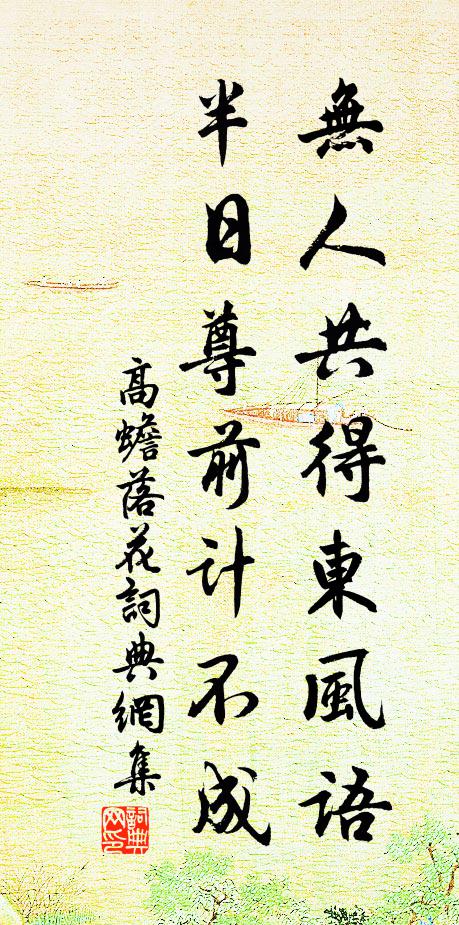 無人共得東風語
半日尊前計不成
高蟾落花詞典網集
詞典網印